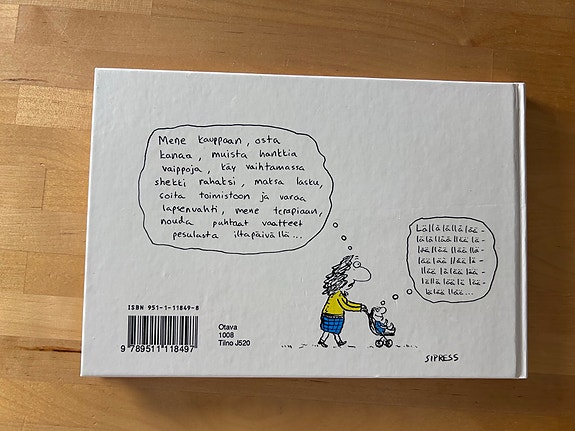 Mene kauppaan, osta
kanaa, muista hankkia
vaippoja, käy vaihtamassa
shekki rahaksi, maksa lasku,
soita toimistoon ja varaa
lapsenvahti, mene terapiaan,
nouda puhtaat vaatteet
pesulasta iltapäivällä...
Lällä lällä lää-
lälällää llää lä-
lää llää llää llä-
lää lää llää lä-
lläälä lää lää-
lällä lää lä lää-
lä lää llää...
ISBN 951-1-11849-8
9 789511 118497
Otava
1008
Tilno J520
SIPRESS